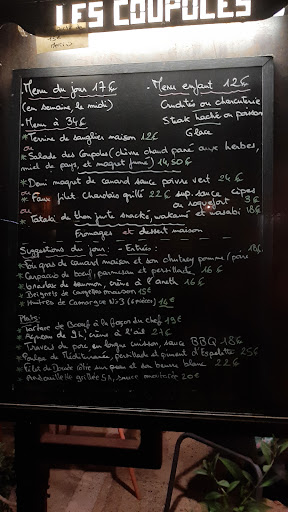 LES COUPOLES
Menu du jour 17€
(en semaine, le midi)
• Menu à 34€
• Menu enfant 12€
Crudités ou charcuterie
Steak haché ou poisson
Glace
* Terrine de sanglier maison 12€
ou
* Salade des Coupoles (chèvre chaud pané aux herbes,
miel de pays, et magret fumé) 14,50€
* Demi magret de canard sauce poivre vert 24€
ou
* Faux filet Charolais grillé 22€ sup. sauce cèpes
ou roquefort 3€
ou
* Tataki de thon juste snacké, wakamé et wasabi 18€
Fromages et dessert maison
Suggestions du jour: - Entrées:
* Foie gras de canard maison et son chutney pomme/poire 18€
* Carpaccio de bœuf, parmesan et persillade 16€
* Gravlax de saumon, crème à l'aneth 16€
* Beignets de maison 15€
* Huîtres de Camargue N°3 (6 pièces) 14€
Plats:
* Tartare de Bœuf à la façon du chef 19€
* Agneau de 7h, crème à l'ail 27€
* Travers de porc en longue cuisson, sauce BBQ 18€
* de Méditerranée, persillade et piment d'Espelette 25€
* Filet de sur peau et son beurre blanc 22€
* Andouillette grillée 5A, sauce moutarde 20€